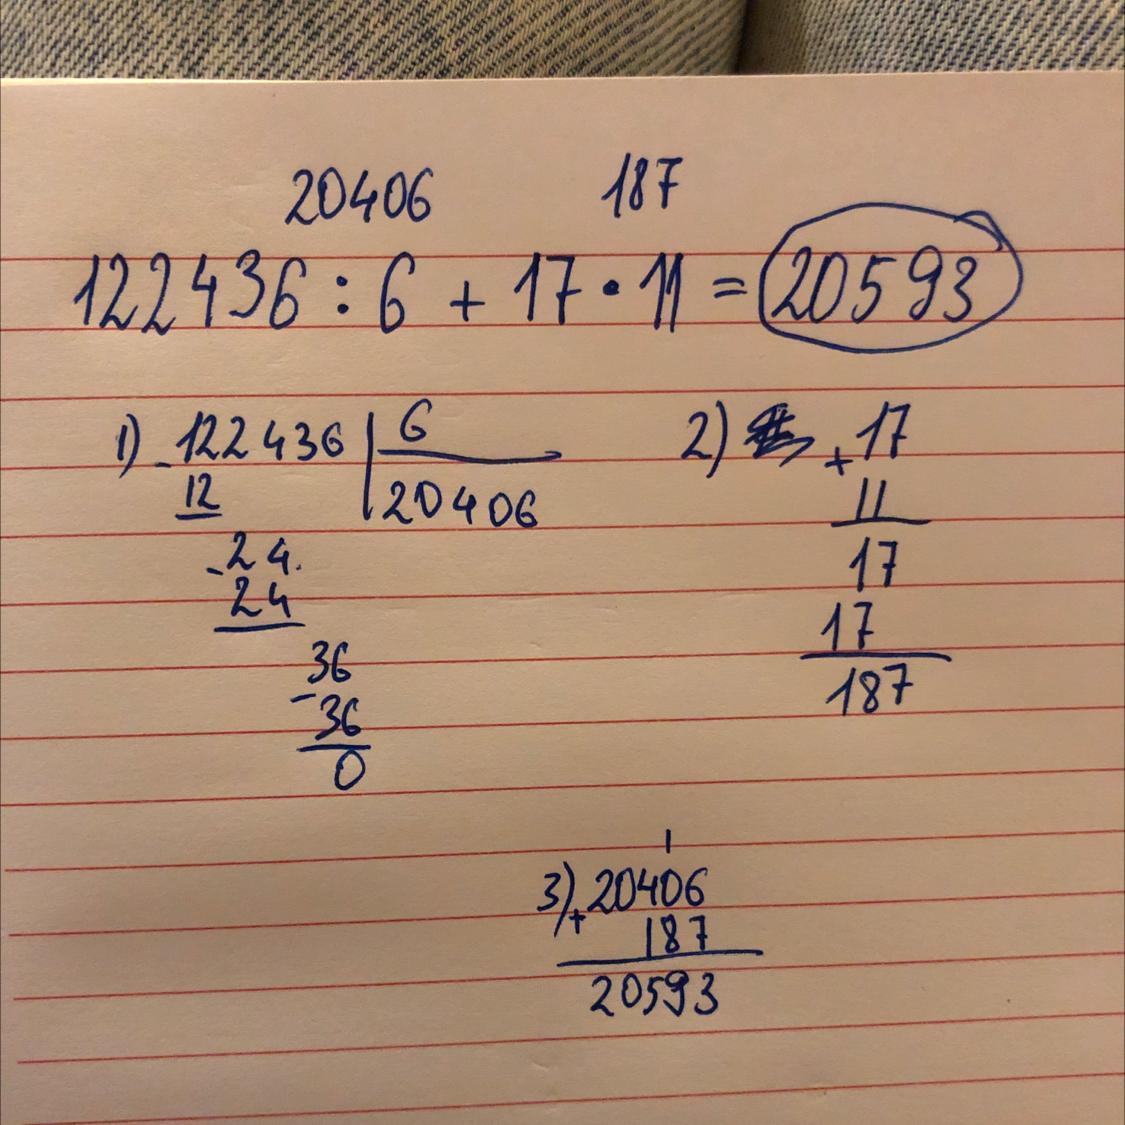 20406 187
122436 : 6 + 17 • 11 = 20593
1) - 122436 | 6
12 20406
- 24
24
36
- 36
0
2) + 17
11
17
17
187
1
3) + 20406
187
20593